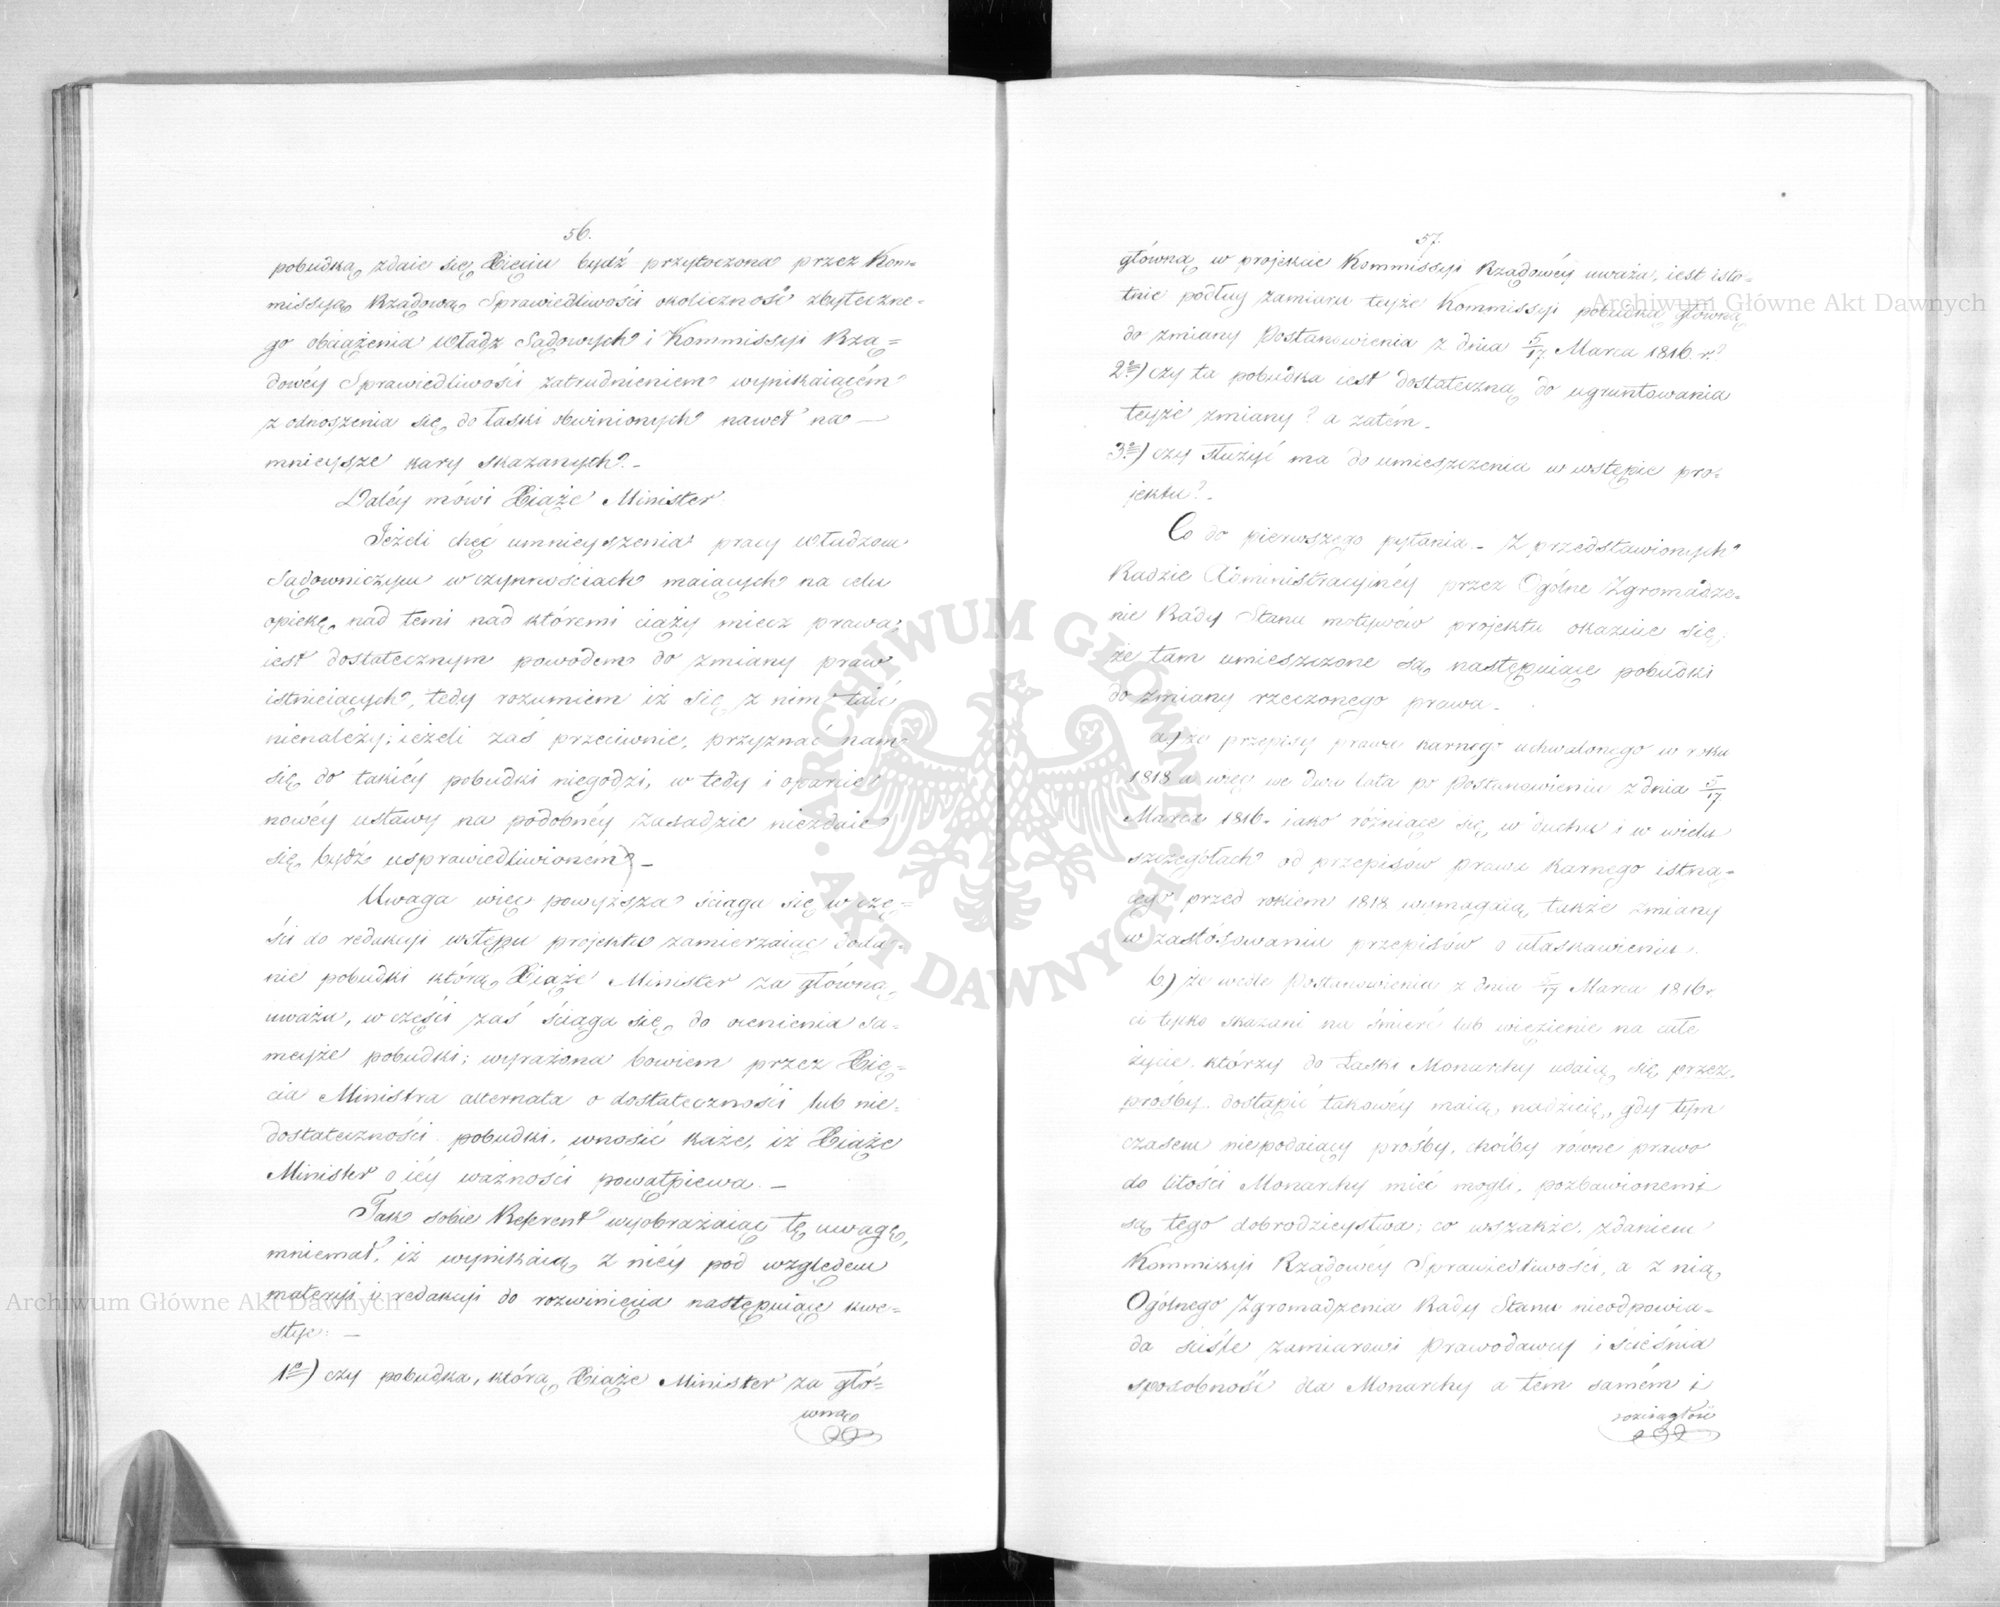 56.
pobudką zdaie się Xięciu bydź przytoczona przez Kom-
missyią Rządową Sprawiedliwości okoliczność zbyteczne-
go obciążenia Władz Sądowych i Kommissyi Rzą=
dowéy Sprawiedliwości zatrudnieniem wynikaiącém
z odnoszenia się do łaski obwinionych nawet na —
mnieysze kary skazanych. –
Daléy mówi Xiąże Minister
Jeżeli chęć umnieyszenia pracy Władzom
Sądowniczym w czynnościach maiących na celu
opiekę nad temi nad któremi ciąży miecz prawa
iest dostatecznym powodem do zmiany praw
istnieiących, tedy rozumiem iż się z nim taić
nienależy; ieżeli zaś przeciwnie, przyznać nam
się do takiéy pobudki niegodzi, w tedy i oparcie
nowéy ustawy na podobnéy zasadzie niezdaie
się bydź usprawiedliwioném –
Uwaga więc powyższa ściąga się w czę=
ści do redakcyi wstępu projektu zamierzaiąc doda-
nie pobudki którą Xiąże Minister za główną
uważa, w części zaś ściąga się do ocenienia sa-
meyże pobudki; wyrażona bowiem przez Xię=
cia Ministra alternata o dostateczności lub nie-
dostateczności pobudki, wnosić każe, iż Xiąże
Minister o iéy ważności powątpiewa. –
Tak sobie Referent wyobrażaiąc tę uwagę,
mniemał, iż wynikaią z niéy pod względem
materyi i redakcyi do rozwinięcia następuiące kwe-
stye: —
1º) czy pobudka, którą Xiąże Minister za głó-
wną
57.
główną w projekcie Kommissyi Rządowéy uważa, iest isto-
tnie podług zamiaru teyże Kommissyi pobudką główną
do zmiany Postanowienia z dnia 5/17 Marca 1816. r?
2º) czy ta pobudka iest dostateczną do ugruntowania
teyże zmiany? a zatém –
3º) czy służyć ma do umieszczenia w wstępie pro-
jektu? –
Co do pierwszego pytania – Z przedstawionych
Radzie Administracyinéy przez Ogólne Zgromadze-
nie Rady Stanu motywów projektu okazuie się,
że tam umieszczone są następuiące pobudki
do zmiany rzeczonego prawa –
a) że przepisy prawa karnego uchwalonego w roku
1818 a więc we dwa lata po Postanowieniu z dnia 5/17
Marca 1816. iako różniące się w duchu i w wielu
szczegółach od przepisów prawa karnego istną-
cego przed rokiem 1818 wymagaią także zmiany
w zastosowaniu przepisów o ułaskawieniu.
b) że wedle Postanowienia z dnia 5/17 Marca 1816 r
ci tylko skazani na śmierć lub więzienie na całe
życie, którzy do Łaski Monarchy udaią się przez
prośby, dostąpić takowéy maią nadzieię, gdy tym
czasem niepodaiący prośby, choćby równe prawo
do litości Monarchy mieć mogli, pozbawionemi
są tego dobrodzieystwa; co wszakże, zdaniem
Kommissyi Rządowéy Sprawiedliwości, a z nią
Ogólnego Zgromadzenia Rady Stanu nieodpowia-
da ściśle zamiarowi Prawodawcy i ścieśnia
sposobność dla Monarchy a tém samém i
rozciągłość
Archiwum Główne Akt Dawnych
Archiwum Główne Akt Dawnych
ARCHIWUM GŁÓWNE
AKT DAWNYCH